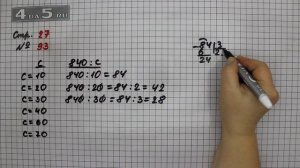 4на5.ru
Стр. 27
№ 93
c 840:c
c=10 840:10=84
c=20 840:20=84:2=42
c=30 840:30=84:3=28
c=40
c=60
c=70
84 3
6 2
24